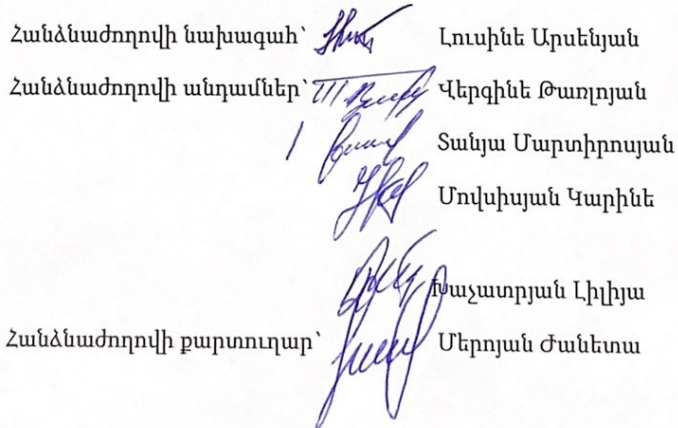 Հանձնաժողովի նախագահ՝ Լուսինե Արսենյան
Հանձնաժողովի անդամներ՝ Վերգինե Թառլոյան
Տանյա Մարտիրոսյան
Մովսիսյան Կարինե
Խաչատրյան Լիլիյա
Հանձնաժողովի քարտուղար՝ Մերոյան Ժանետա